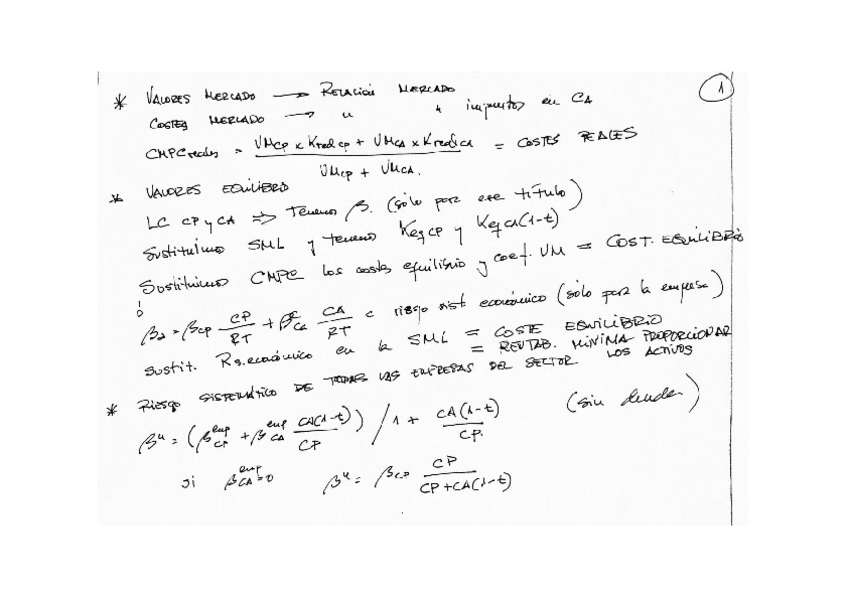 1
* VALORES MERCADO → RELACIÓN MERCADO
COSTES MERCADO → " + impuestos en CA
CMPCreales = (VMCP x Kreal CP + VMCA x Kreal CA) / (VMCP + VMCA) = COSTES REALES
* VALORES EQUILIBRIO
LC CP y CA => Tenemos β. (sólo para ese título)
Sustituimos SML y tenemos KeqCP y KeqCA(1-t)
Sustituimos CMPC los costes equilibrio y coef. VM = COST. EQUILIBRIO
ó
β = βCP CP/RT + βCA CA/RT = riesgo sist económico (sólo para la empresa)
Sustit. Rs.económico en la SML = COSTE EQUILIBRIO
= RENTAB. MÍNIMA PROPORCIONAR LOS ACTIVOS
* RIESGO SISTEMÁTICO DE TODAS LAS EMPRESAS DEL SECTOR
βu = (βCP emp + βCA emp CA(1-t)/CP) / 1 + CA(1-t)/CP (sin deuda)
si βCA emp = 0 βu = βCP CP/(CP+CA(1-t))